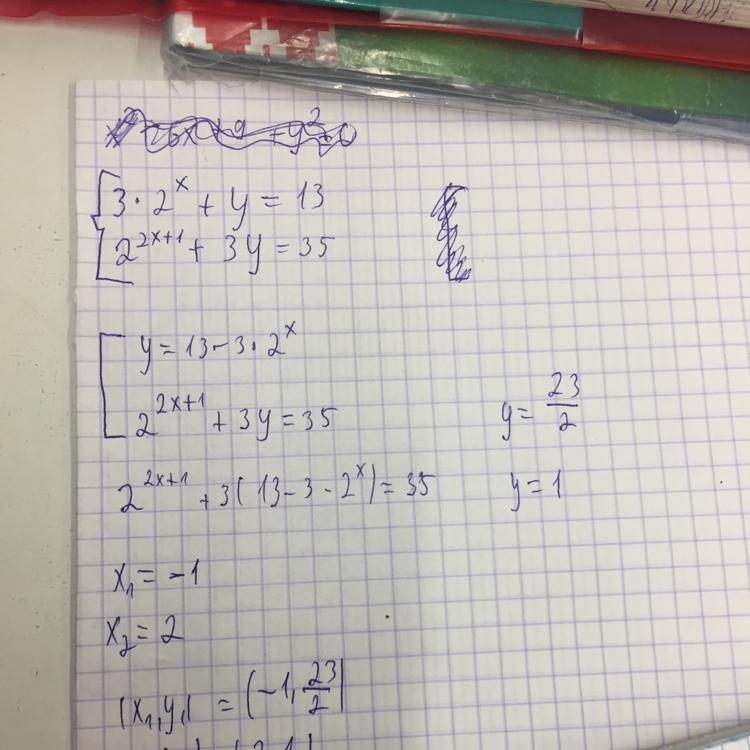 3 · 2^x + y = 13
2^{2x+1} + 3y = 35
y = 13 - 3 · 2^x
2^{2x+1} + 3y = 35
y = 23/2
2^{2x+1} + 3(13 - 3 - 2^x) = 35
y = 1
x₁ = -1
x₂ = 2
(x₁, y₁) = (-1, 23/2)